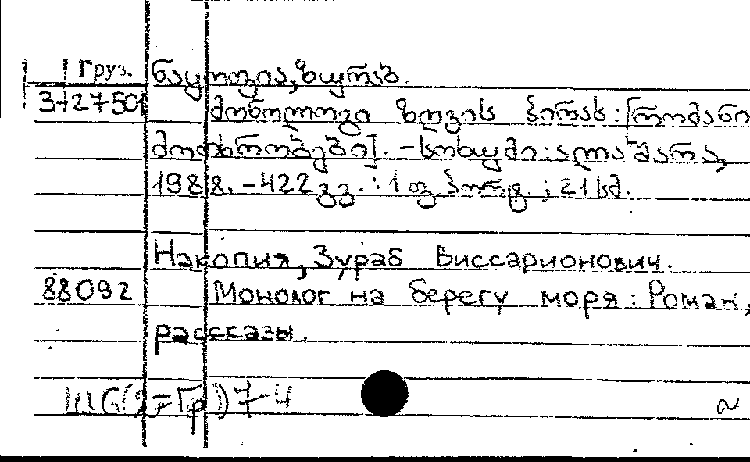 Груз. ნაყოფია, ზურაბ.
3-27501 მონოლოგი ზღვის პირას: [რომანი
მოთხრობები]. - სოხუმი: ალაშარა,
1988. - 422 გვ. : 1 ფ. პორტ. ; 21 სმ.
Накопия, Зураб Виссарионович.
88092 Монолог на берегу моря: Роман,
рассказы.
Ш6(2=Гр)7-4